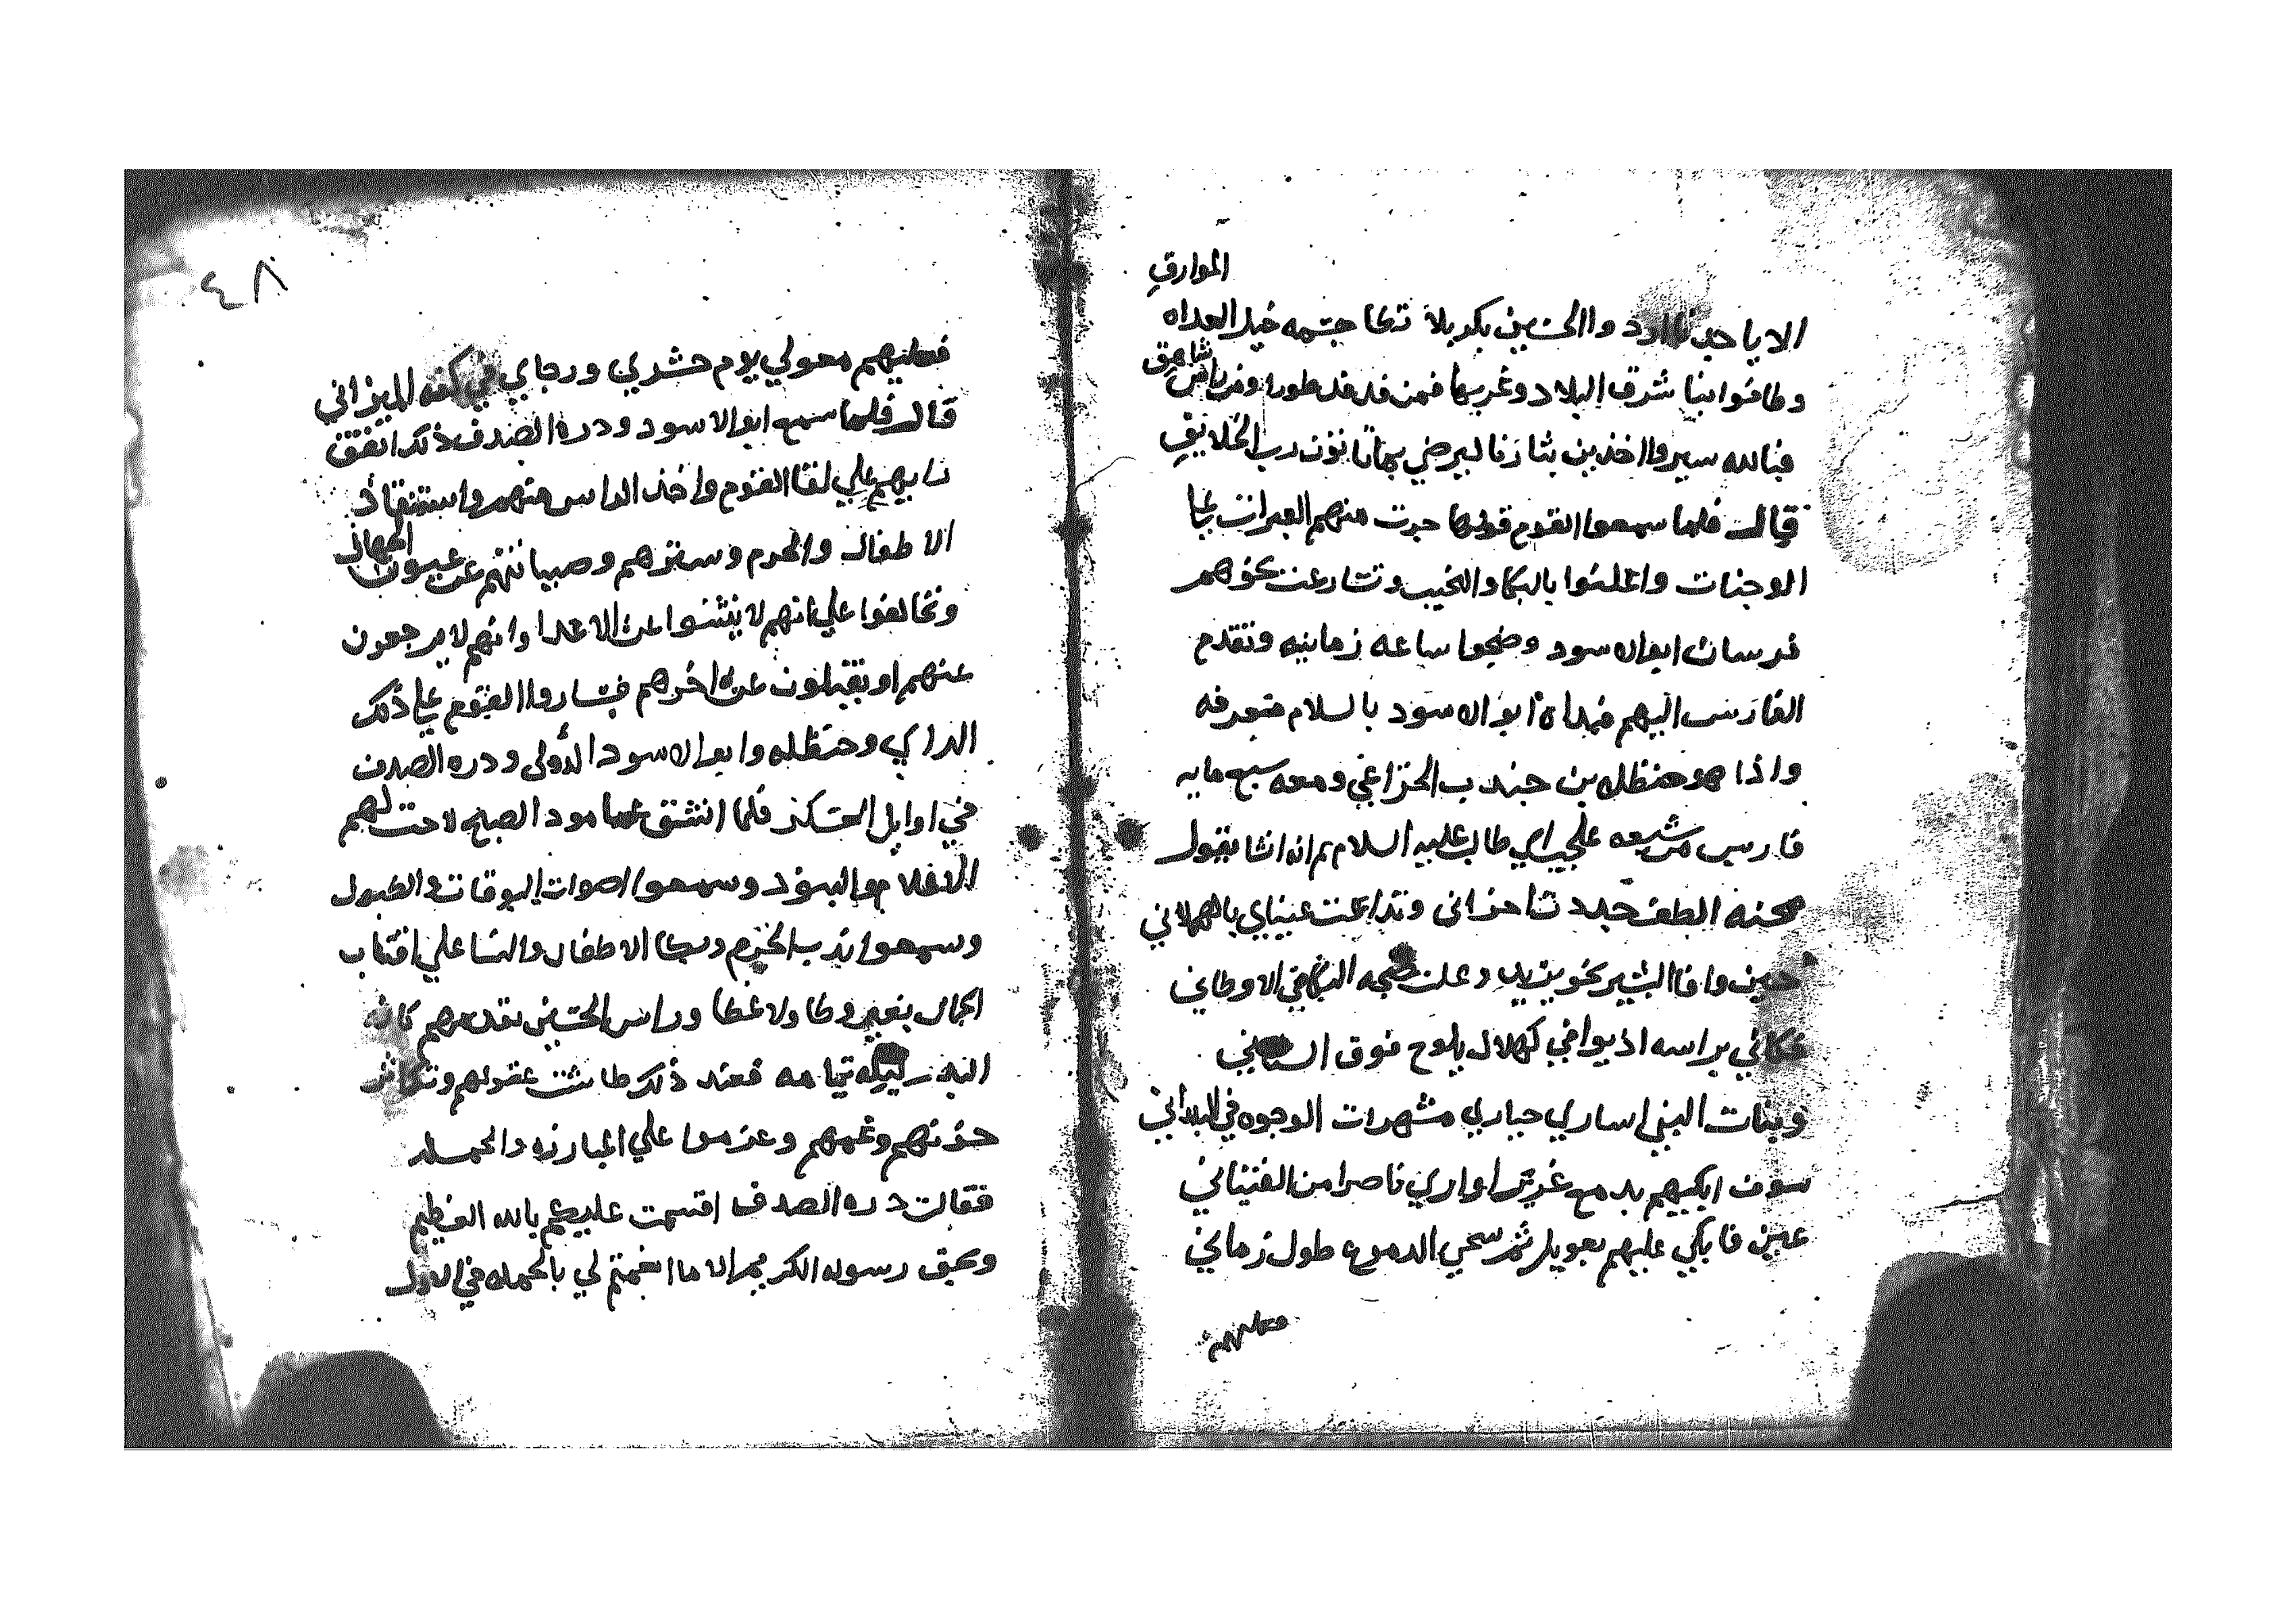 الموارق
الا يا حدنا والحسين بكربلا تطا جسمه خيل العداه
شاهق
وطافوا بنا شرق البلاد وغربها فمن فدفد طورا ومن راس
فبالله سيروا اخذين بثارنا ليرضي بهاتا نون رب الخلايق
قال فلما سمعوا القوم قولها جرت منهم العبرات علي
الوجنات واعلنوا بالبكا والنحيب وتسارعت نحوهم
فرسان ابوالاسود وضجوا ساعه زمانيه وتقدم
الفارس اليهم فبداه ابو الاسود بالسلام فتعرفه
واذا هو حنظله بن جندب الخزاعي ومعه سبع مايه
فارس من شيعه علي بن ابي طالب عليه السلام ثم انه انشا يقول
محنه الطف جددت احزاني وتداعت عيناي بالهملاني
حين وافا البشير نحو يزيد وعلت ضجه البكا في الاوطاني
فكاني براسه اذ يوافي كهلال يلوح فوق السناني
وبنات النبي اساري حياري مشهرات الوجوه في البلداني
سوف ابكيهم بدمع غزير اواري ناصرا من الفتياني
عين فابكي عليهم بعويل ثم سحي الدموع طول زماني
فعليهم
٤٨
فعليهم معولي يوم حشري ورجاي في كفه الميزاني
قال فلما سمع ابوالاسود ودره الصدف ذلك اتفق
رايهم علي لقا القوم واخذ الراس منهم واستنقاذ
الاطفال والحرم وسترهم وصيانتهم عن عيون الجهال
وتحالفوا علي انهم لا ينثنوا عن الاعدا وانهم لا يرجعون
عنهم او يقتلون عن اخرهم فساروا القوم علي ذلك
الراي وحنظله وابو الاسود الدؤلي ودره الصدف
في اوايل العسكر فلما انشق عامود الصبح لاحت لهم
الاعلام والبنود وسمعوا اصوات البوقات والطبول
وسمعوا ندب الحرم وبكا الاطفال والنسا علي اقتاب
الجمال بغير وطا ولا غطا وراس الحسين يقدمهم كانه
البدر ليله تمامه فعند ذلك طاشت عقولهم وتكاثر
حزنهم وغمهم وعزموا علي المبارزه والحمله
فقالت دره الصدف اقسمت عليكم بالله العظيم
وبحق رسوله الكريم الا ما انعمتم لي بالحمله في الاول